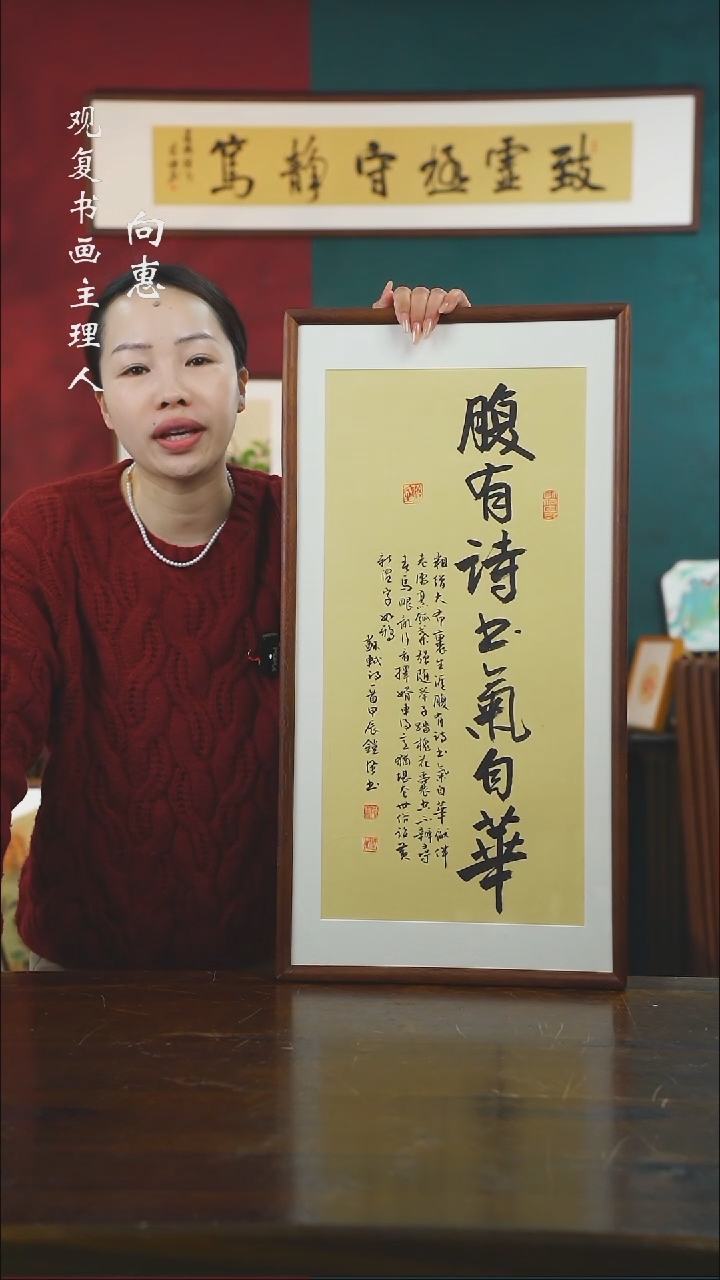 观复书画主理人
向惠
致虚極守静篤
腹有诗书氣自華
粗缯大布裹生涯腹有诗书氣自華厭伴
老儒烹瓠葉强随举子踏槐花囊空不辦寻
春馬眼乱行看擇婿車得意猶堪夸世俗诏黄
新湿字如鸦
蘇軾诗一首甲辰
书